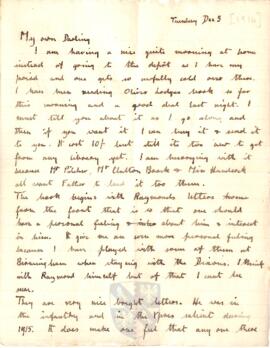 Tuesday Dec 5 [1916]
My own Darling
I am having a nice quite morning at home
instead of going to the depôt as I have my
period and one gets so awfully cold over there.
I have been reading Oliver Lodges book so far
this morning and a good deal last night. I
must tell you about it as I go along and
then if you want it I can buy it & send it
to you. It cost 10/- but still its too new to get
from any library yet. I am hurrying with it
because Mr Pitcher, Mr Clutton Brock & Miss
all want Father to lend it too them.
The book begins with Raymonds letters home
from the front that is so that one should
have a personal feeling & about him & interest
in him. It give me an even more personal feeling
because I have played with some of them at
Birmingham when staying with the Deacons. I think
with Raymond himself but of that I cant be
sure.
They are very nice boyest letters. He was in
the infantry and in the Ypres salient during
1915. It does make one feel that any one there